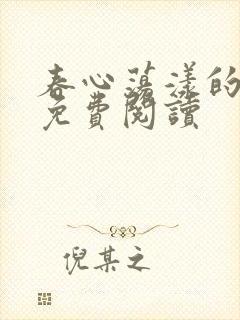 春心蕩漾的
免費閱讀
倪某之